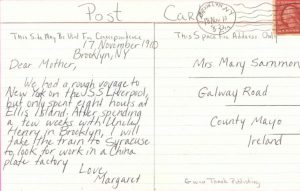 Post Card
This Side May Be Used For Correspondence
This Space For Address Only
17 November 1910
Brooklyn, NY
Dear Mother,
We had a rough voyage to
New York on the SS Liverpool,
but only spent eight hours at
Ellis Island. After spending
a few weeks with Uncle
Henry in Brooklyn, I will
take the train to Syracuse
to look for work in a China
plate factory
Love,
Margaret
Mrs Mary Sammon
Galway Road
County Mayo
Ireland
BROOKLYN, N.Y.